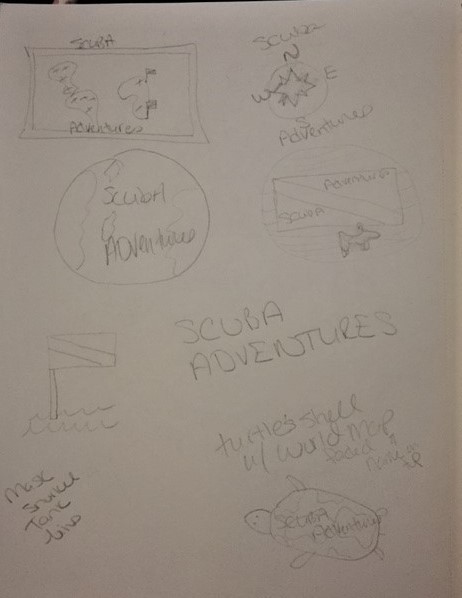 SCUBA
Adventures
SCUBA
N
W
E
S
Adventures
SCUBA
Adventures
Adventures
SCUBA
SCUBA
ADVENTURES
turtle's shell
w/ World Map
faded
name on
Mask
Snorkel
Tank
fins
SCUBA
Adventures